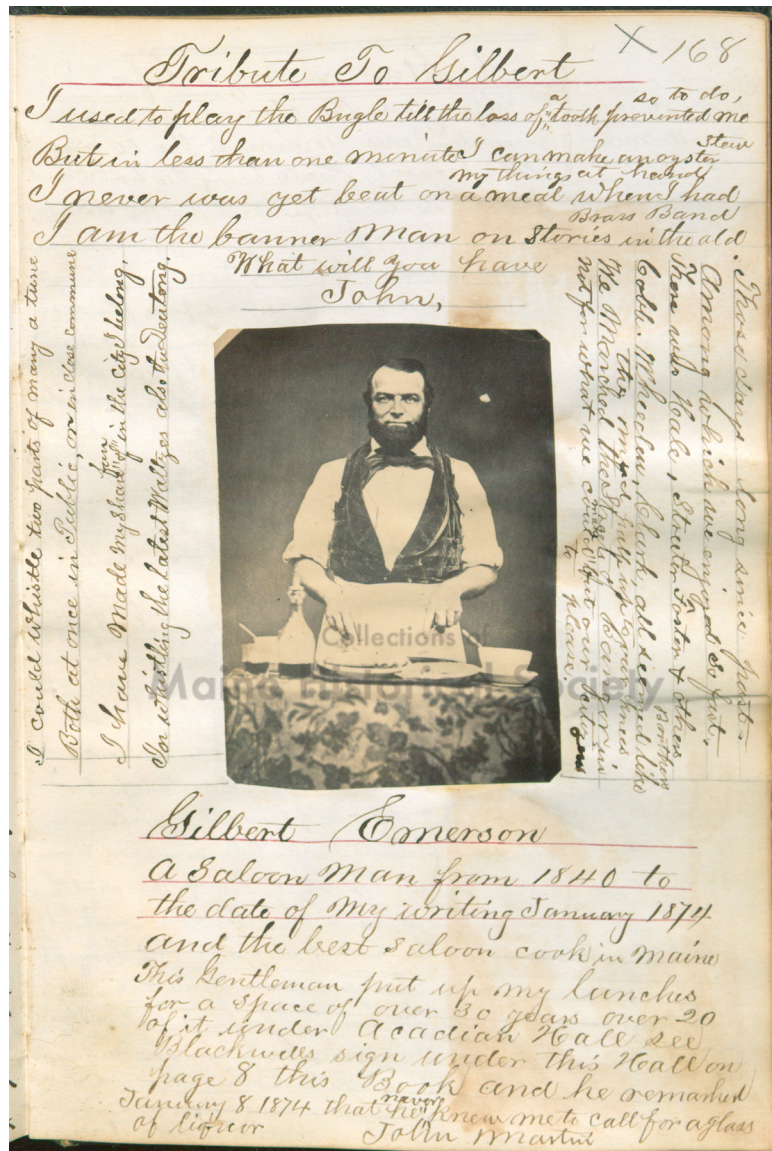 X 168
Tribute To Gilbert
I used to play the Bugle till the loss of a tooth prevented me so to do,
But in less than one minute I can make an oyster stew
I never was yet beat on a meal when I had my things at hand
I am the banner Man on Stories in the old Brass Band
What will you have
John,
I could whistle two parts of many a tune
Both at once in Public, or in close commune
I have Made My Share of fun in the City I belong,
For whistling the latest Waltzes also the Deutong.
Those days long since past.
Among which we enjoyed so fast.
There was Hale, Stowe Foster & others
Cobb, Wheeler, Clark, all seemed like Brothers
The Marched the Stages of Bangor in
Not for what we could but our
to please.
Collections of
Maine Historical Society
Gilbert Emerson
A Saloon Man from 1840 to
the date of My writing January 1874
and the best Saloon cook in Maine
This Gentleman put up my lunches
for a space of over 30 years over 20
of it under Acadian Hall see
sign under this Hall on
page 8 this Book and he remarked
January 8 1874 that he never knew me to call for a glass
of liquor
John Martin